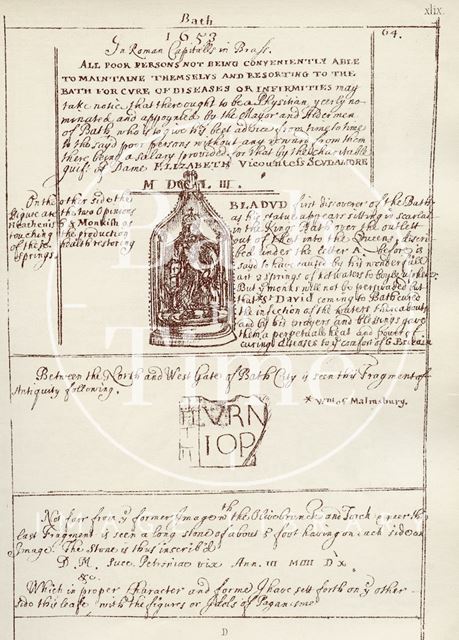 xlix.
Bath
1653
64.
In Roman Capitalls in Brass.
ALL POOR PERSONS NOT BEING CONVENIENTLY ABLE
TO MAINTAINE THEMSELVS AND RESORTING TO THE
BATH FOR CVRE OF DISEASES OR INFIRMITIES may
take notice that there ought to be a Physitian yeerly no-
minated and appoynted by the Mayor and Aldermen
of Bath who is to give his best advice from time to time
to the said poor persons without any reward from them
there being a salary provided for that by the charitable
guift of Dame ELIZABETH Vicountess SCUDAMORE
M DC L III.
On the other side the
Figure are the two Opinions
Heathenish & Monkish
touching the production
of these health restoring
Springs.
BLADVD first discoverer of the Bath
as his statue apears sitting in scarlet
in the Kings Bath over the outlett
out of that into the Queens, discri-
bed under the letter A before is
said to have caused by his
2 springs of hot waters to
But the monks will not be perswaded but
that St David coming to Bath cured
the infection of the waters then about,
and by his prayers and blessings gave
them a perpetuall heat and power of
curing diseases to ye comfort of G. Britain
Between the North and West Gate of Bath City is seen this Fragment of
Antiquity following.
* Wm of Malmsbury.
VRN
IOP
Not far from ye former Image with the Olive Crunch and Torch or near the
last Fragment is seen a long stone of about 5 foot having on each side an
Image. The stone is thus inscrib'd
D. M. Succ. Petroniae vix Ann. III MIIII DX
&c.
Which in proper character and forme I have sett forth on ye other
side this leafe with the figures or Idols of Paganisme
D
Bath in Time